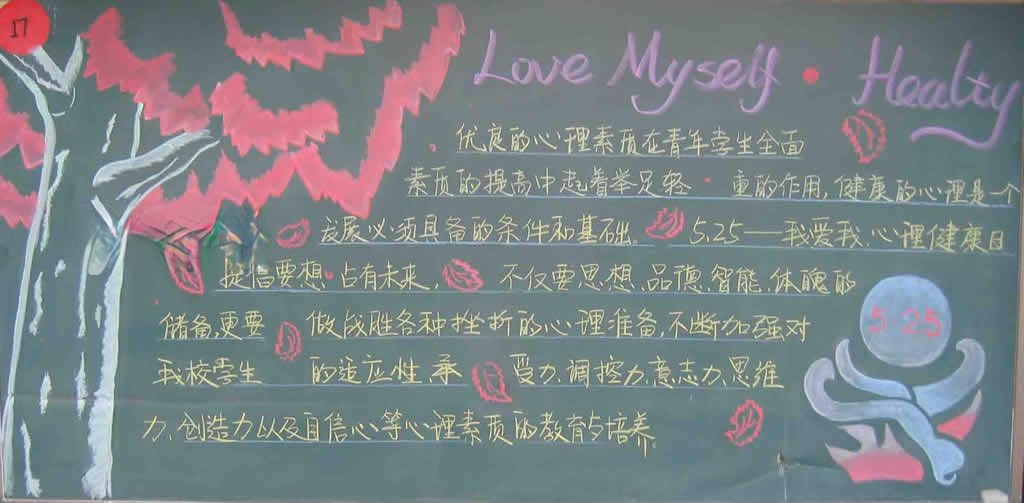 17
Love Myself · Healty
优良的心理素质在青年学生全面
素质的提高中起着举足轻·重的作用,健康的心理是一个
发展必须具备的条件和基础。5.25——我爱我.心理健康日
提信要想占有未来, 不仅要思想.品德.智能.体魄的
储备,更要 做战胜各种挫折的心理准备,不断加强对
我校学生 的适应性.承 受力.调控力.意志力.思维
力、创造力以及自信心等心理素质的教育与培养。
5·25